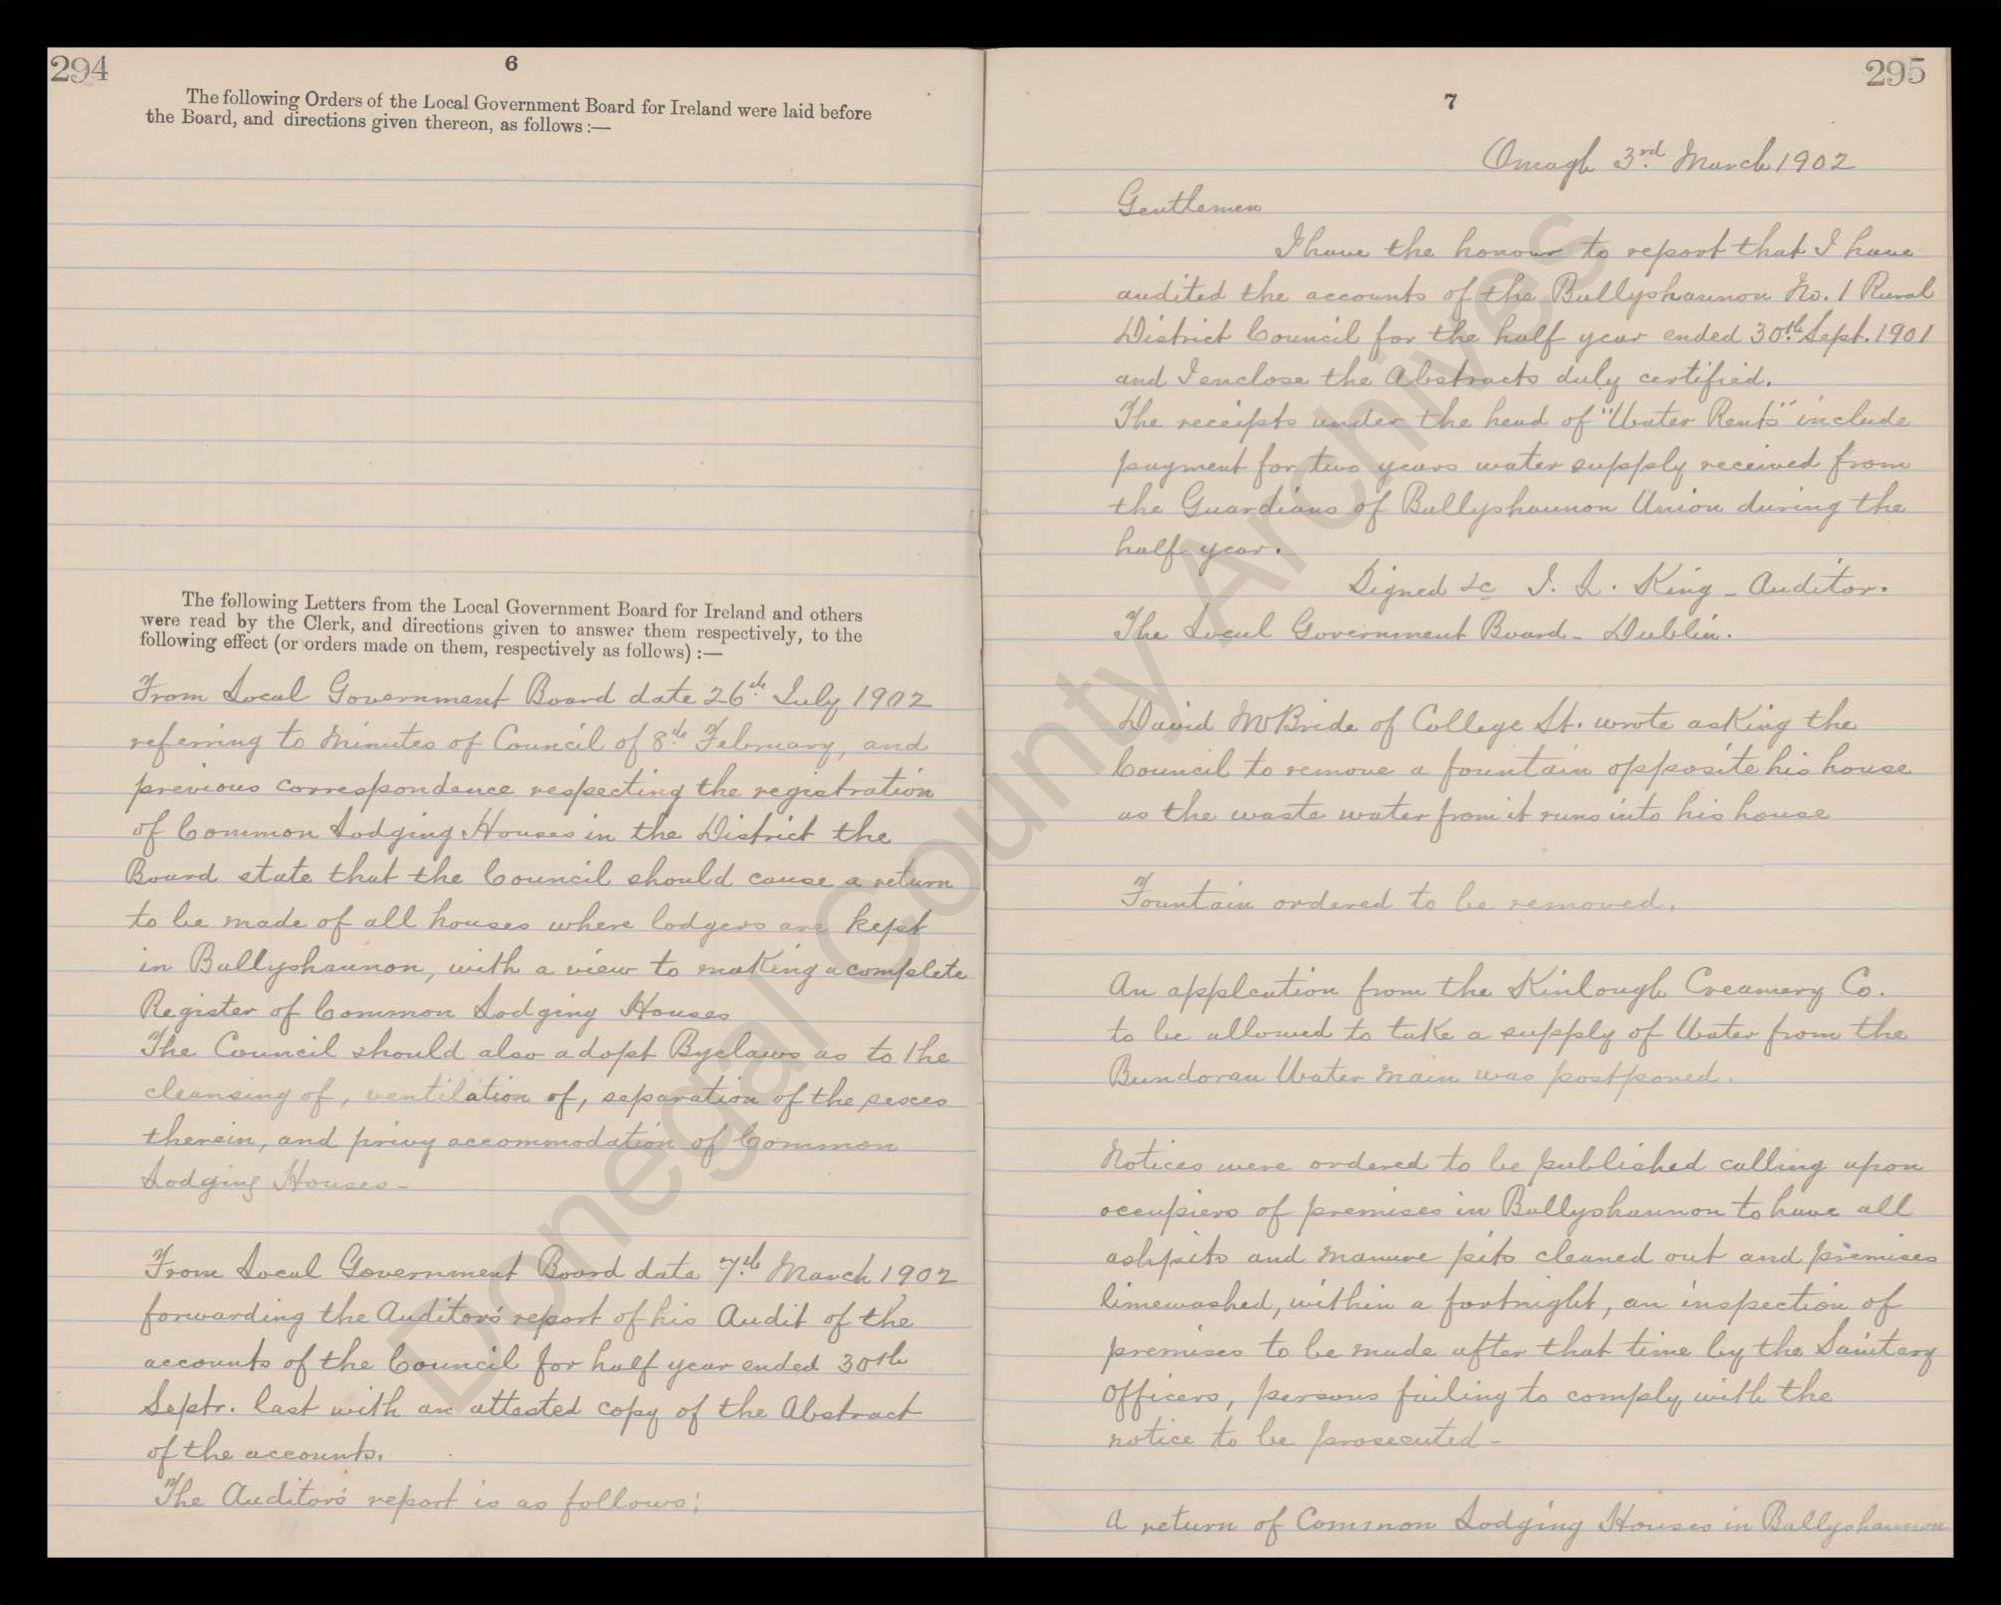 294
6
The following Orders of the Local Government Board for Ireland were laid before
the Board, and directions given thereon, as follows :—
The following Letters from the Local Government Board for Ireland and others
were read by the Clerk, and directions given to answer them respectively, to the
following effect (or orders made on them, respectively as follows) :—
From Local Government Board date 26th July 1902
referring to Minutes of Council of 8th February, and
previous correspondence respecting the registration
of Common Lodging Houses in the District the
Board state that the Council should cause a return
to be made of all houses where lodgers are kept
in Ballyshannon, with a view to making a complete
Register of Common Lodging Houses
The Council should also adopt Byelaws as to the
cleansing of, ventilation of, separation of the sexes
therein, and privy accommodation of Common
Lodging Houses -
From Local Government Board date 7th March 1902
forwarding the Auditors' report of his Audit of the
accounts of the Council for half year ended 30th
Septr. last with an attested copy of the Abstract
of the accounts.
The Auditors' report is as follows;
295
7
Omagh 3rd March 1902
Gentlemen
I have the honour to report that I have
audited the accounts of the Ballyshannon No. 1 Rural
District Council for the half year ended 30th Sept. 1901
and I enclose the Abstracts duly certified.
The receipts under the head of "Water Rents" include
payment for two years water supply received from
the Guardians of Ballyshannon Union during the
half year.
Signed &c J. L. King - Auditor.
The Local Government Board - Dublin.
David McBride of College St. wrote asking the
Council to remove a fountain opposite his house
as the waste water from it runs into his house
Fountain ordered to be removed.
An applcation from the Kinlough Creamery Co.
to be allowed to take a supply of Water from the
Bundoran Water Main was postponed.
Notices were ordered to be published calling upon
occupiers of premises in Ballyshannon to have all
ashpits and manure pits cleaned out and premises
limewashed, within a fortnight, an inspection of
premises to be made after that time by the Sanitary
Officers, persons failing to comply with the
notice to be prosecuted -
A return of Common Lodging Houses in Ballyshannon
Donegal County Archives